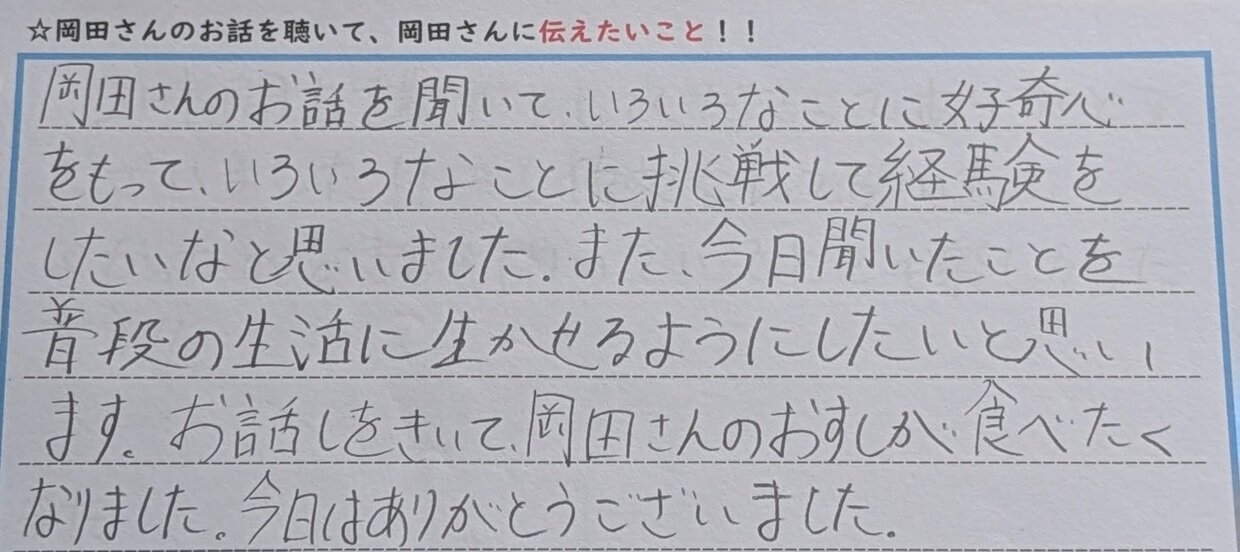 ☆岡田さんのお話を聴いて、岡田さんに伝えたいこと！！
岡田さんのお話を聞いて、いろいろなことに好奇心
をもって、いろいろなことに挑戦して経験を
したいなと思いました。また、今日聞いたことを
普段の生活に生かせるようにしたいと思い
ます。お話しをきいて、岡田さんのおすしが食べたく
なりました。今日はありがとうございました。